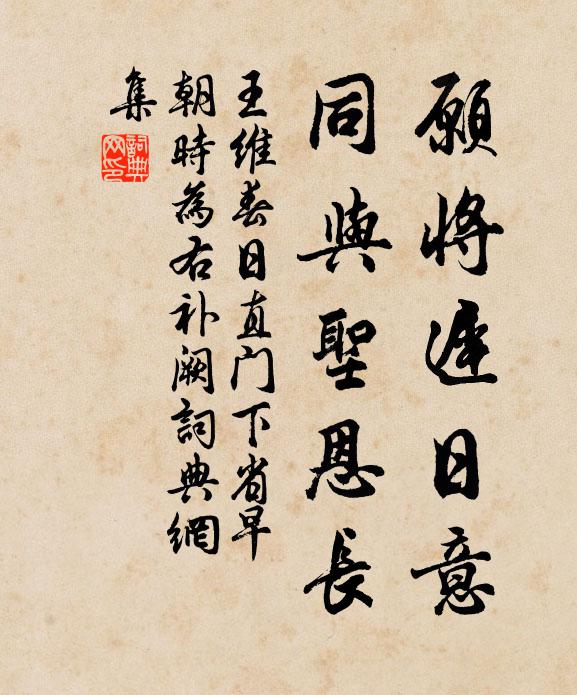 願將遲日意
同與聖恩長
王維春日直门下省早
朝時為右补阙詞典網
集
詞典网印